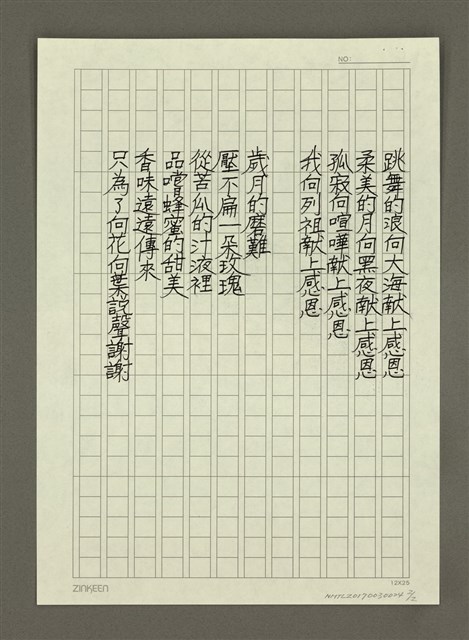 NO:
跳舞的浪向大海献上感恩
柔美的月向黑夜献上感恩
孤寂向喧嘩献上感恩
我向列祖献上感恩
歲月的磨難
壓不扁一朵玫瑰
從苦瓜的汁液裡
品嚐蜂蜜的甜美
香味遠遠傳來
只為了向花向葉說聲謝謝
ZINKEEN
12X25
NMTL20170030004 2/2